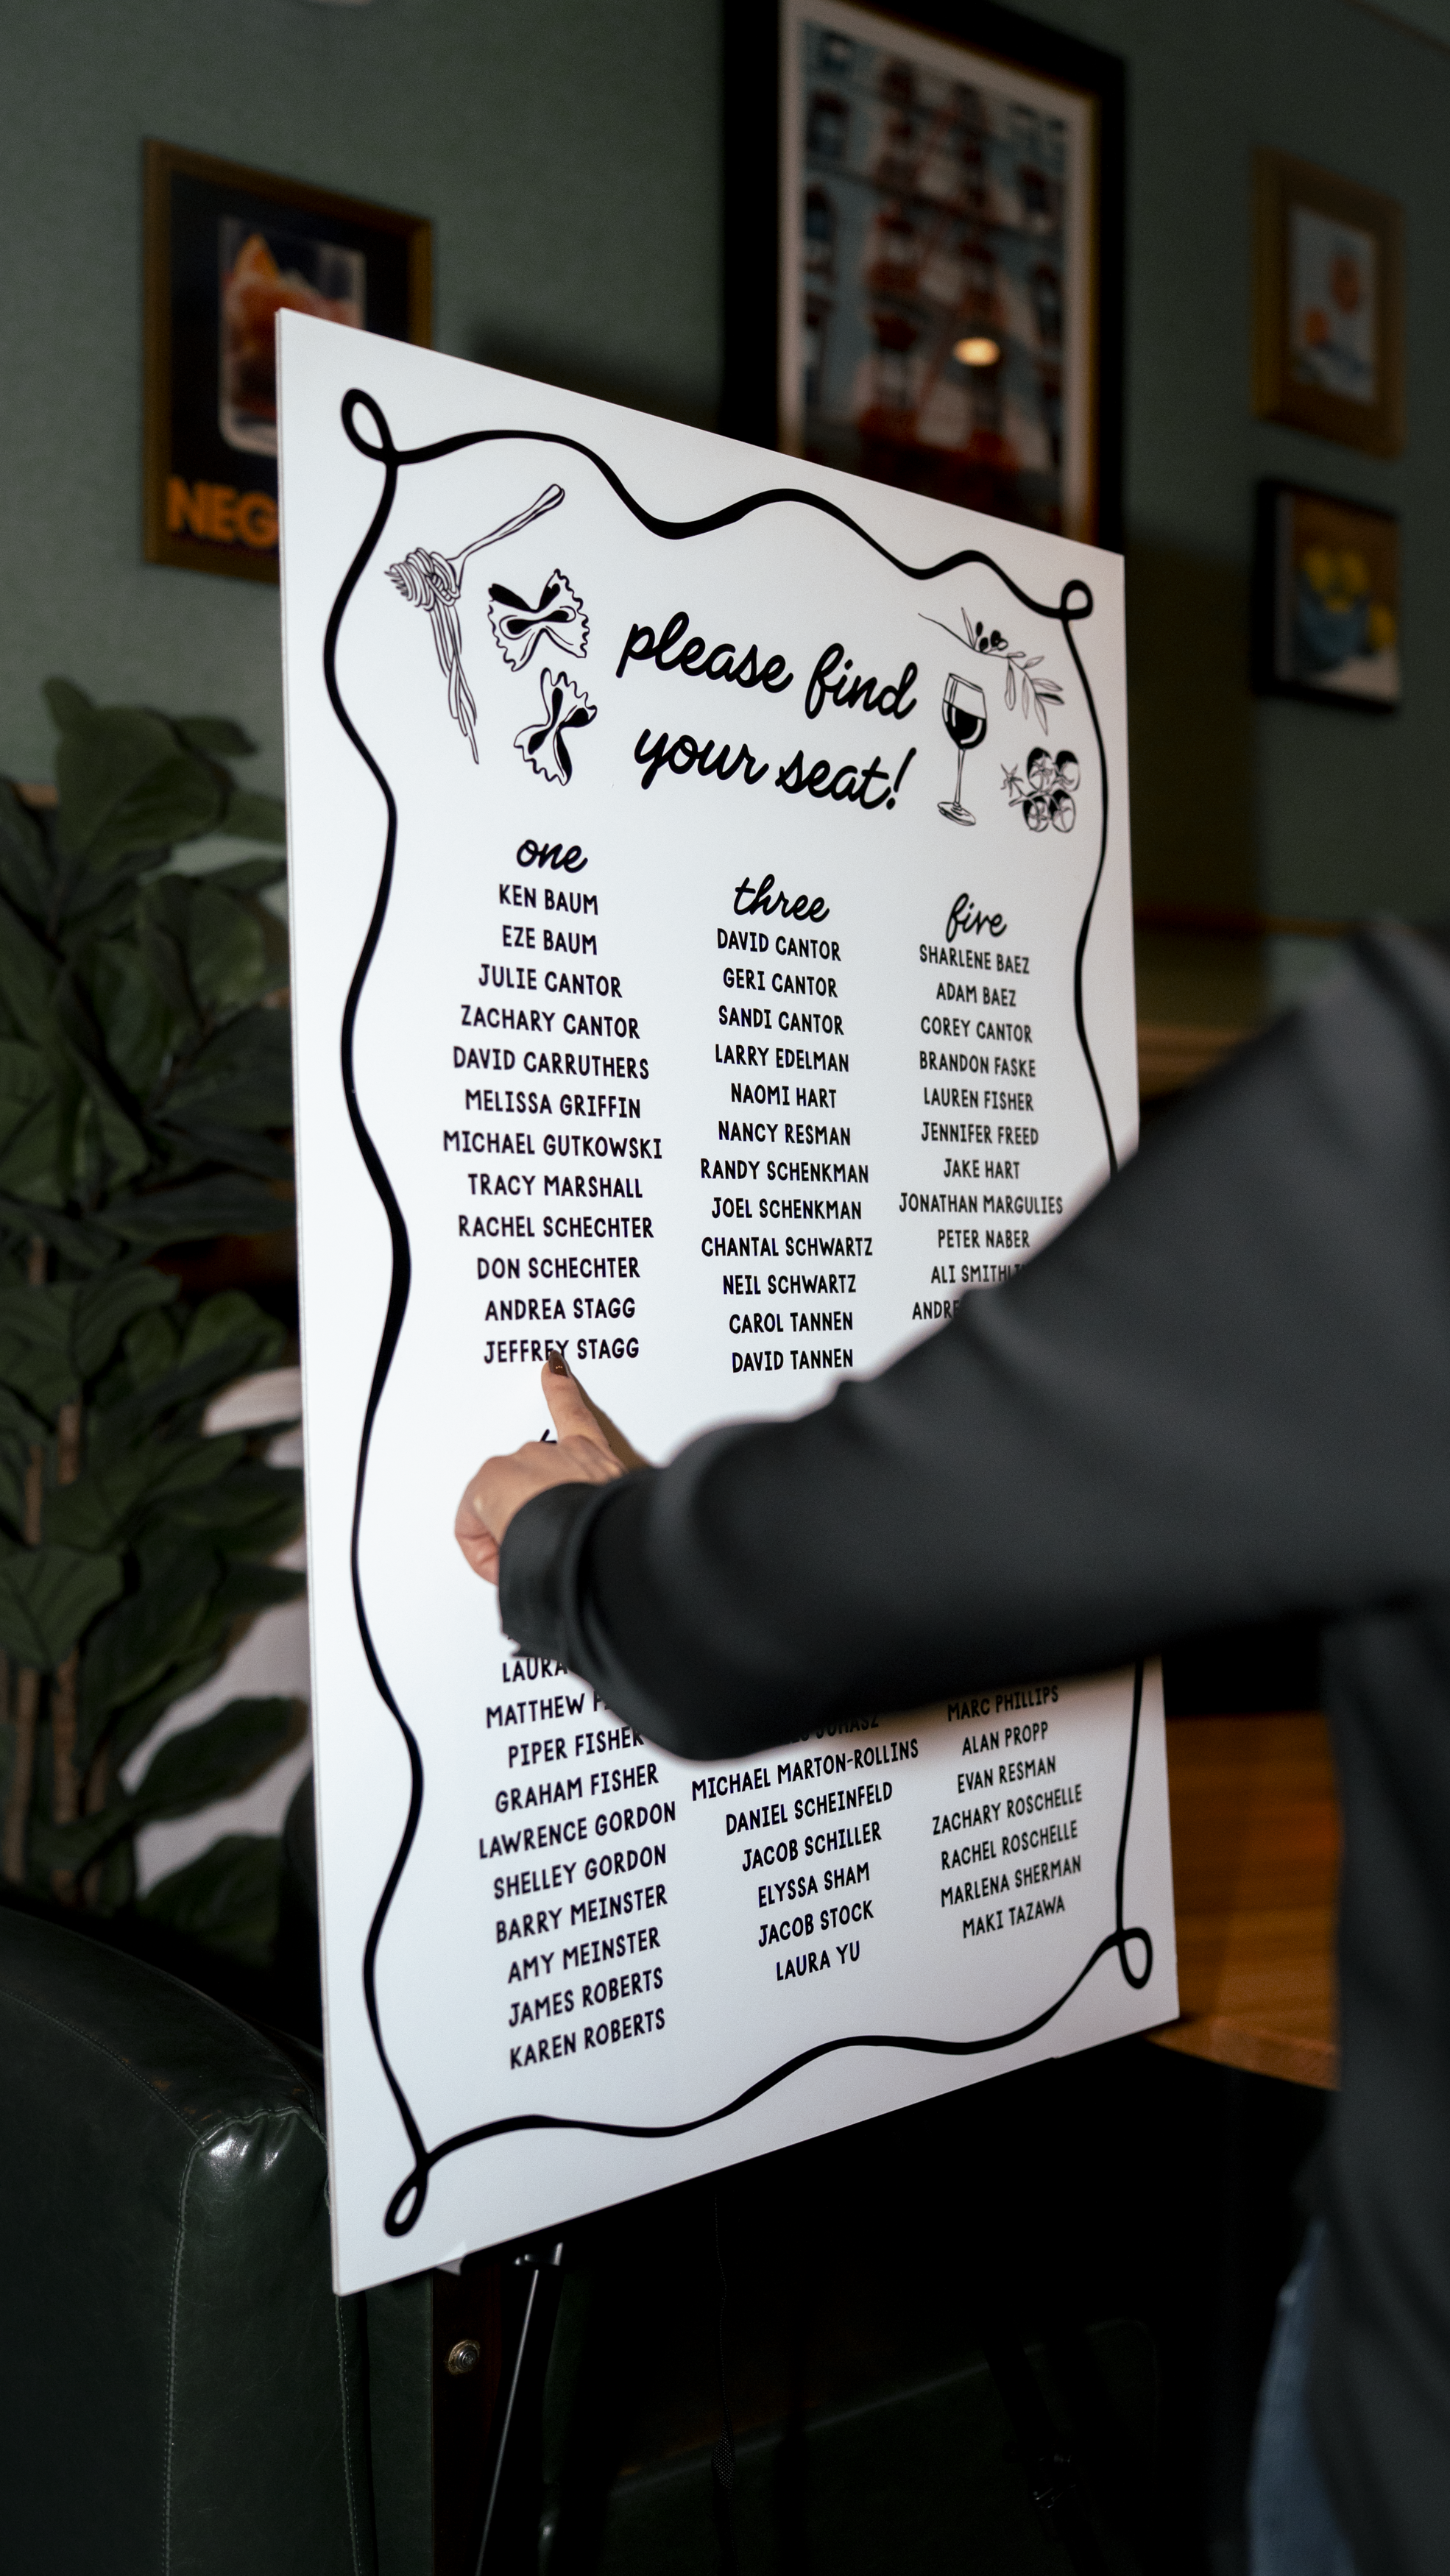 NEG
please find
your seat!
one
KEN BAUM
EZE BAUM
JULIE CANTOR
ZACHARY CANTOR
DAVID CARRUTHERS
MELISSA GRIFFIN
MICHAEL GUTKOWSKI
TRACY MARSHALL
RACHEL SCHECHTER
DON SCHECHTER
ANDREA STAGG
JEFFREY STAGG
LAURA
MATTHEW
PIPER FISHER
GRAHAM FISHER
LAWRENCE GORDON
SHELLEY GORDON
BARRY MEINSTER
AMY MEINSTER
JAMES ROBERTS
KAREN ROBERTS
three
DAVID CANTOR
GERI CANTOR
SANDI CANTOR
LARRY EDELMAN
NAOMI HART
NANCY RESMAN
RANDY SCHENKMAN
JOEL SCHENKMAN
CHANTAL SCHWARTZ
NEIL SCHWARTZ
CAROL TANNEN
DAVID TANNEN
JUHASZ
MICHAEL MARTON-ROLLINS
DANIEL SCHEINFELD
JACOB SCHILLER
ELYSSA SHAM
JACOB STOCK
LAURA YU
five
SHARLENE BAEZ
ADAM BAEZ
COREY CANTOR
BRANDON FASKE
LAUREN FISHER
JENNIFER FREED
JAKE HART
JONATHAN MARGULIES
PETER NABER
ALI
MARC PHILLIPS
ALAN PROPP
EVAN RESMAN
ZACHARY ROSCHELLE
RACHEL ROSCHELLE
MARLENA SHERMAN
MAKI TAZAWA